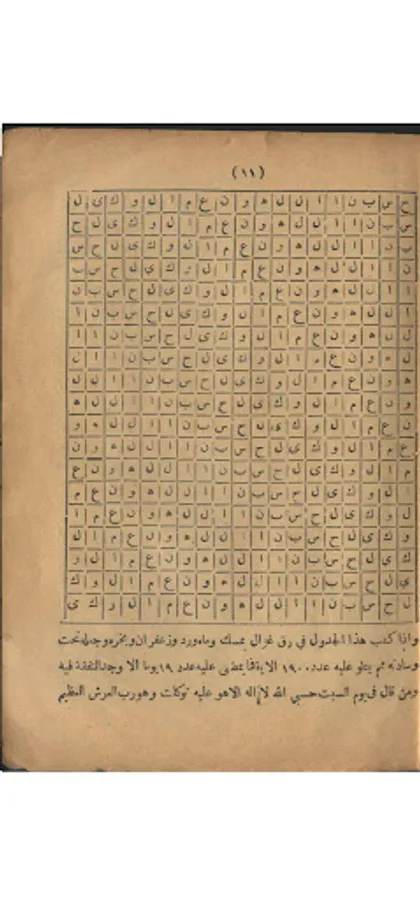 (١١)
ح س ب ن ا ا ل ل ه و ن ع م ا ل و ك ي ل
س ب ن ا ا ل ل ه و ن ع م ا ل و ك ي ل ح
ب ن ا ا ل ل ه و ن ع م ا ل و ك ي ل ح س
ن ا ا ل ل ه و ن ع م ا ل و ك ي ل ح س ب
ا ا ل ل ه و ن ع م ا ل و ك ي ل ح س ب ن
ا ل ل ه و ن ع م ا ل و ك ي ل ح س ب ن ا
ل ل ه و ن ع م ا ل و ك ي ل ح س ب ن ا ا
ل ه و ن ع م ا ل و ك ي ل ح س ب ن ا ا ل
ه و ن ع م ا ل و ك ي ل ح س ب ن ا ا ل ل
و ن ع م ا ل و ك ي ل ح س ب ن ا ا ل ل ه
ن ع م ا ل و ك ي ل ح س ب ن ا ا ل ل ه و
ع م ا ل و ك ي ل ح س ب ن ا ا ل ل ه و ن
م ا ل و ك ي ل ح س ب ن ا ا ل ل ه و ن ع
ا ل و ك ي ل ح س ب ن ا ا ل ل ه و ن ع م
ل و ك ي ل ح س ب ن ا ا ل ل ه و ن ع م ا
و ك ي ل ح س ب ن ا ا ل ل ه و ن ع م ا ل
ك ي ل ح س ب ن ا ا ل ل ه و ن ع م ا ل و
ي ل ح س ب ن ا ا ل ل ه و ن ع م ا ل و ك
ل ح س ب ن ا ا ل ل ه و ن ع م ا ل و ك ي
واذا كتب هذا الجدول في رق غزال بمسك وماءورد وزعفران وبخره وجعله تحت
وسادته ثم يتلو عليه عدد ١٩٠٠ الاية فما يمضى عليه عدد ١٩ يوما الا وجد النفقة فيه
ومن قال فى يوم السبت حسبي الله لااله الاهو عليه توكلت وهو رب العرش العظيم